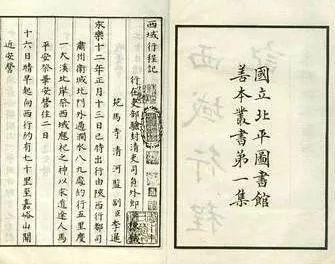 國立北平圖書館
善本叢書第一集
西域行程記
行在吏部驗封清吏司員外郎陳誠
苑馬寺清河監副臣李暹
永樂十二年正月十三日巳時出行由陝西行都司
肅州衛城北門外過 水八九處約行五里度
一大溪北岸祭西域應祀之神以求道途人馬
平安祭畢安營住二日
十六日晴早起向西行約有七十里至嘉峪山關
近安營